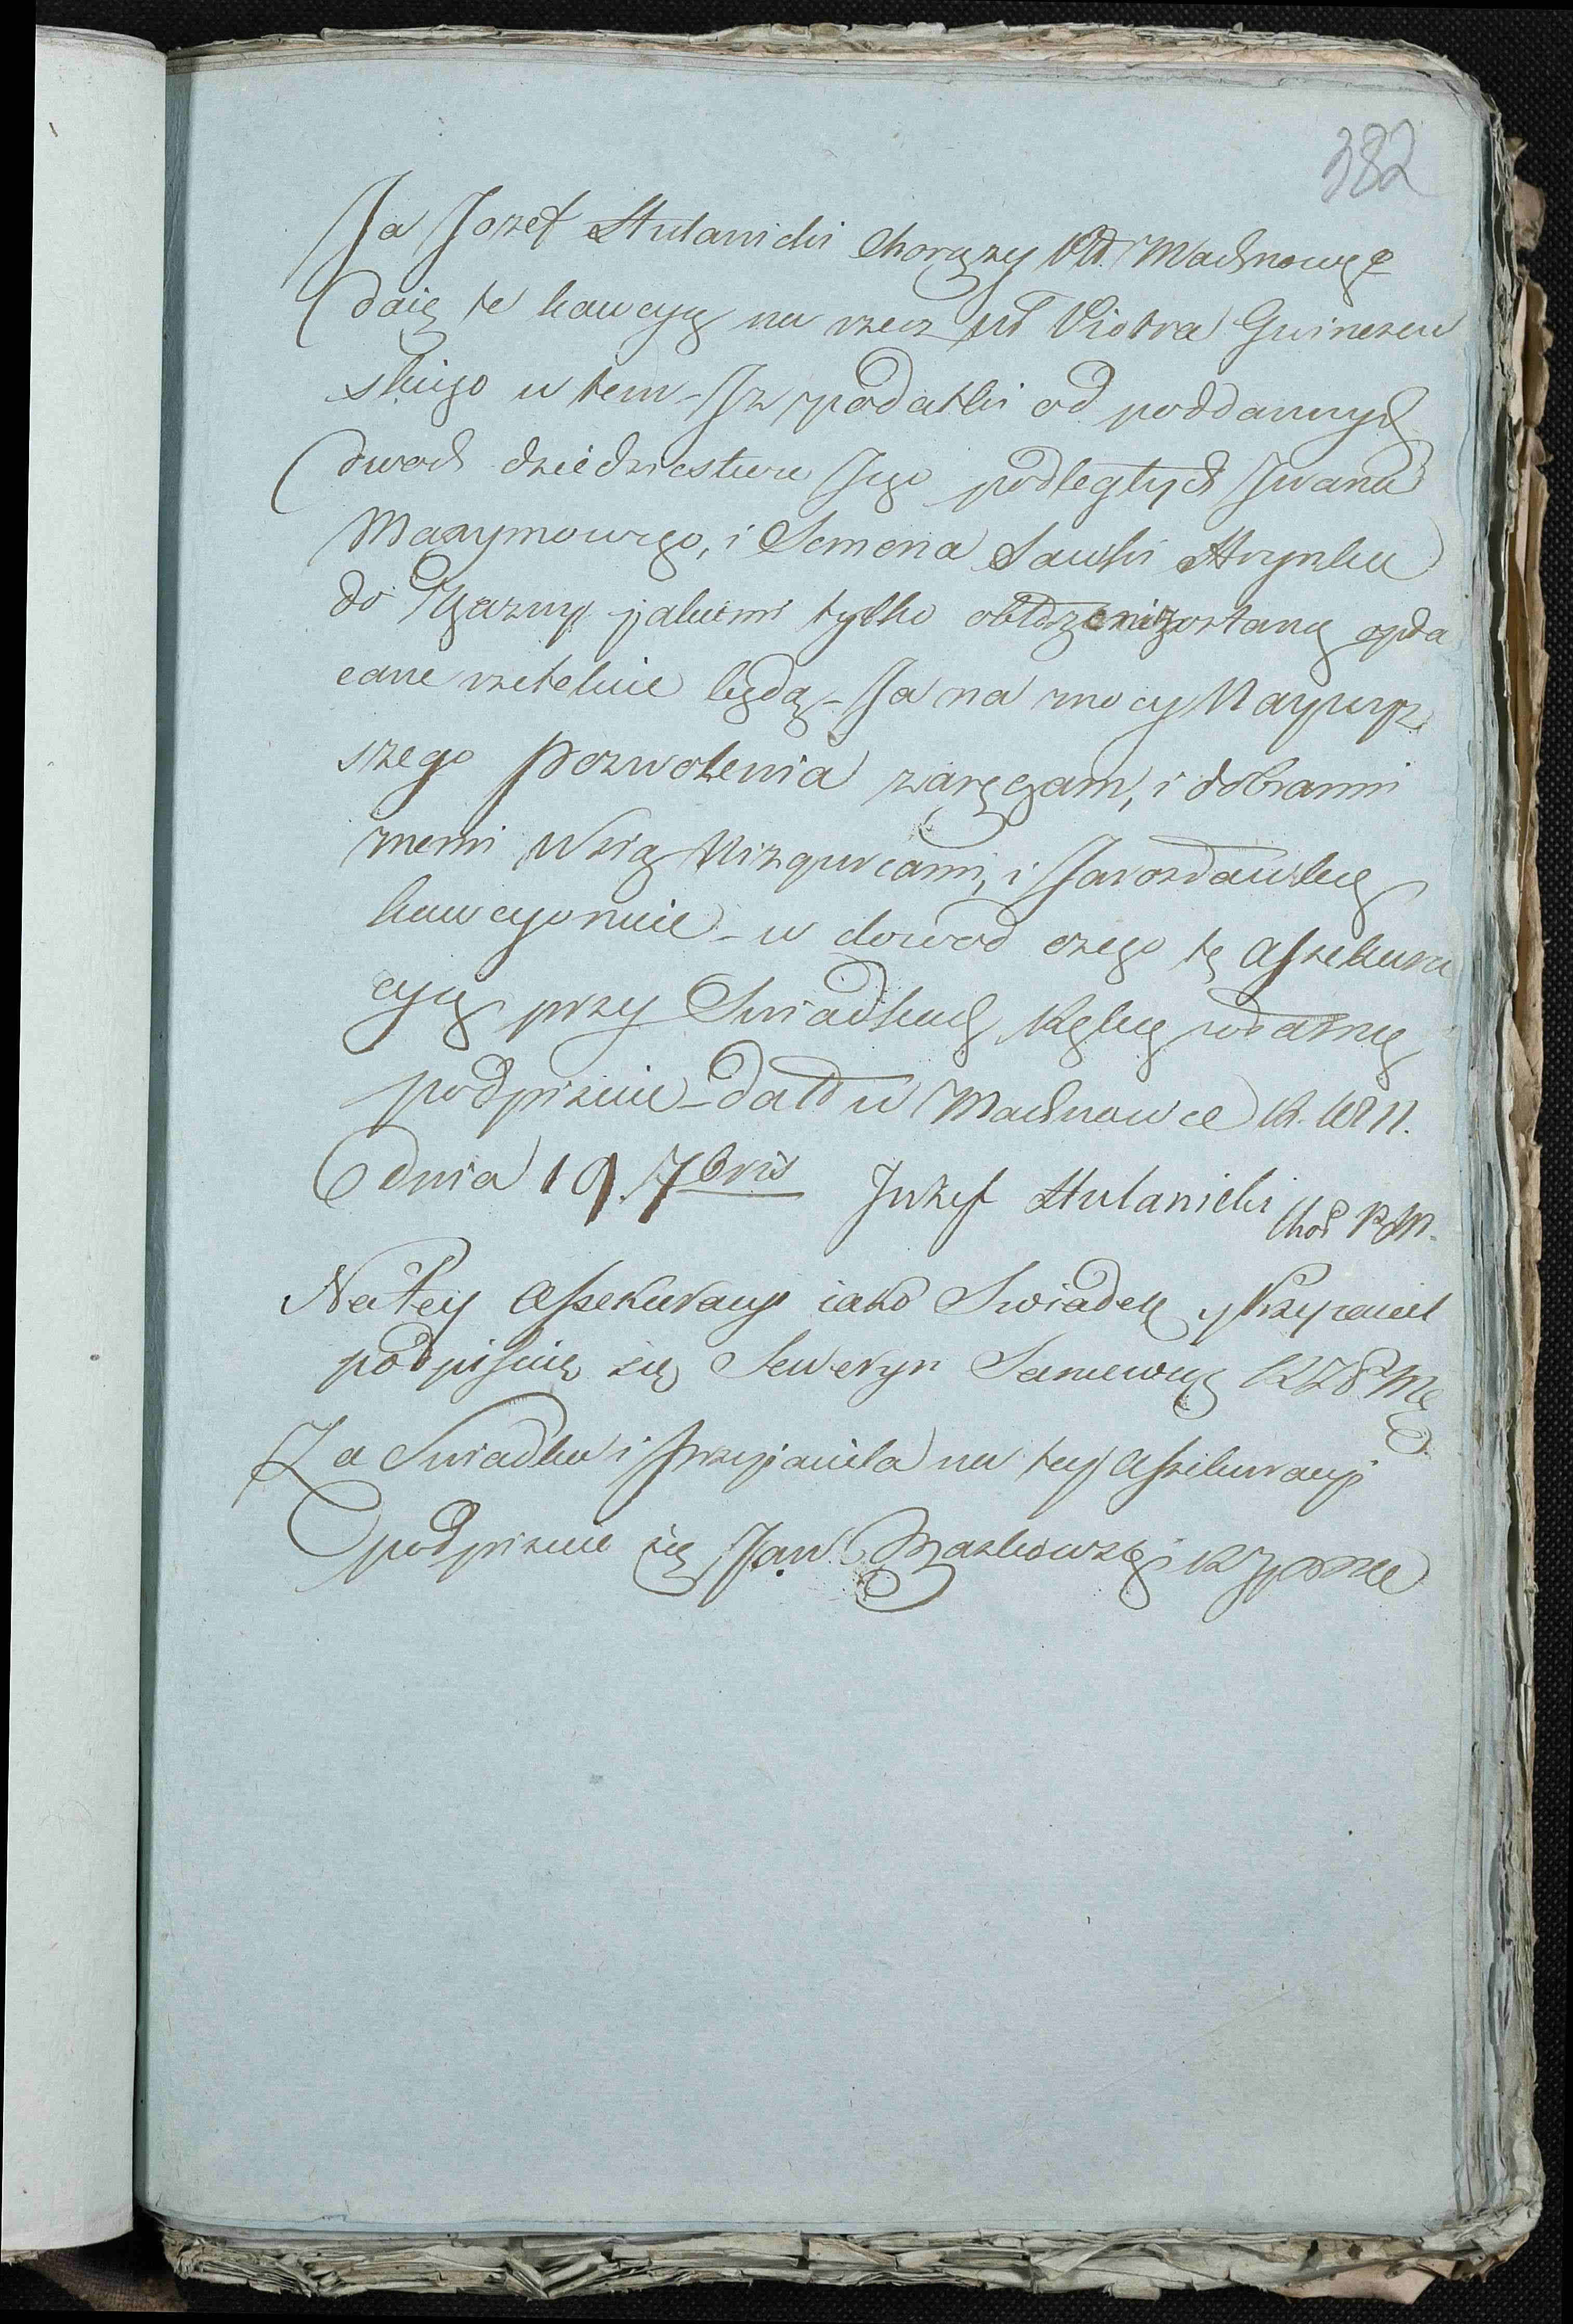 382
Ja Jozef Hulanicki Chorązy Ptt Machnowę
daię te kawcyą na rzecz Ur Piotra Gwinczew
skiego w tem – Jz podatki od poddannych
dwoch dziedzictwu Jego podległych Jwana
Maxymowego, i Semena Sawki Hrynka
do Kazny jakiemi tylko obłożeni zostaną opła
cane rzetelnie będą – Ja na mocy Naywyz
szego pozwolenia zaręczam, i dobrami
memi Wsią Nizgurcami, i Jarosławką
kawcyonuie – w dowod czego tę Assekura
cyią przy Swiadkach Ręką własną
podpisuie – datt w Machnowce R. 1811.
dnia 19. 7bris Jozef Hulanicki Cho P M.
Na tey Assekuracyi iako Swiadek y Przyiaciel
podpisuię się Seweryn
Za Swiadka i przyjaciela na tey Assekuracyi
podpisuie się Jan